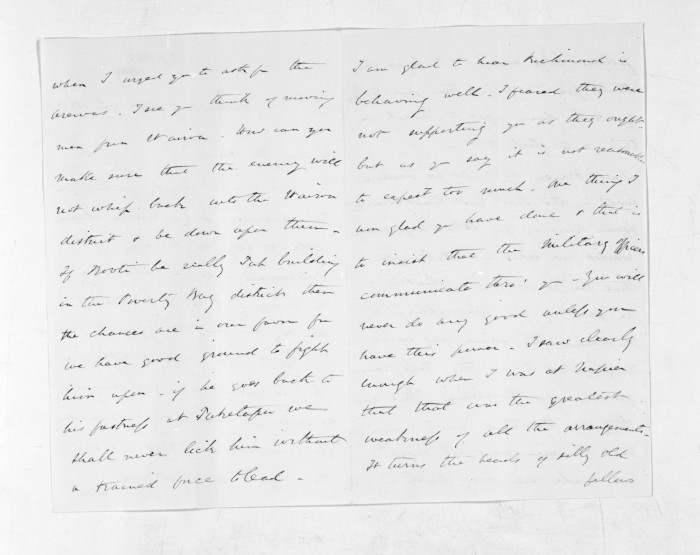 when I urged you to ask for the
arawas. I see you think of moving
men from Wairoa. How can you
make sure that the enemy will
not whip back into the Wairoa
district & be down upon them -
If Kooti be really Pah building
in the Poverty Bay district then
the chances are in our favor for
we have good ground to fight
him upon - if he goes back to
his fastness at Puketapu we
shall never lick him without
a trained force to lead -
I am glad to hear Richmond is
behaving well - I feared they were
not supporting you as they ought
but as you say it is not reasonable
to expect too much. One thing I
am glad you have done & that is
to insist that the Military Officers
communicate thro' you - You will
never do any good unless you
have this power - I saw clearly
enough when I was at Napier
that that was the greatest
weakness of all the arrangements -
It turns the heads of silly old
fellows